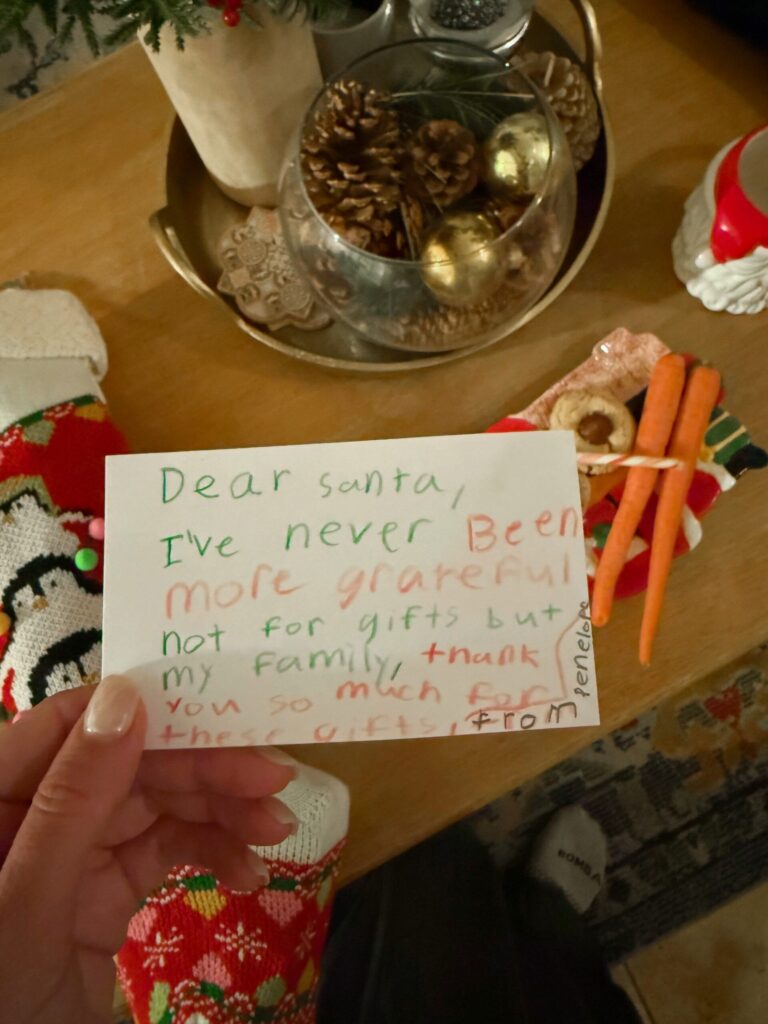 Dear santa,
I've never Been
more grateful
not for gifts but
my family, thank
you so much for
these gifts, from
penelope
BOMBAS